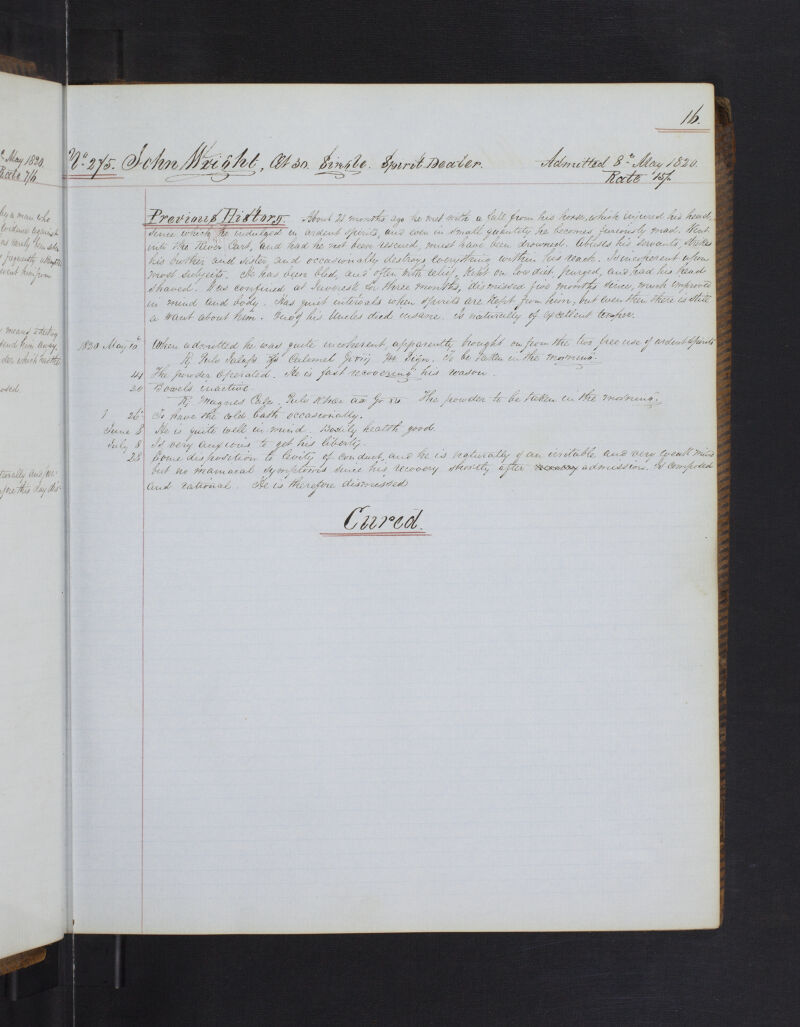 16.
No. 275. John Wright, Æt 30. Single. Spirit Dealer. Admitted 8th May 1820.
Rate 15/.
Previous History. About 21 months ago he met with a fall from his horse, which injured his head,
since which he indulged in ardent spirits, and even in small quantity he becomes furiously mad. Went
into the River Cart, and had he not been rescued, must have been drowned. Abuses his servants, strikes
his brother and sister and occasionally destroys everything within his reach. Is incoherent upon
most subjects. He has been bled, and often with relief, kept on low diet, purged, and had his head
shaved. Was confined at Inveresk for three months, dismissed five months since, much improved
in mind and body. Has quiet intervals when spirits are kept from him, but even then there is still
a want about him. One of his Uncles died insane. Is naturally of excellent temper.
1820 May 12 When admitted he was quite incoherent, apparently brought on from the too free use of ardent spirits
Rx Pulv Jalap Calomel M. Sign. To be taken in the morning.
14 The powder operated. He is fast recovering his reason.
20 Bowels inactive
Rx Magnes Pulv Rhei aa The powder to be taken in the morning.
26 To have the cold bath occasionally.
June 8 He is quite well in mind. Bodily health good
July 8 Is very anxious to get his liberty.
28 Some disposition to levity of conduct, and he is naturally of an irritable and very weak mind
but no maniacal symptoms since his recovery shortly after admission. Is composed
and rational. He is therefore dismissed
Cured.
May 1820.
Rate 7/6
by a man who
went him from